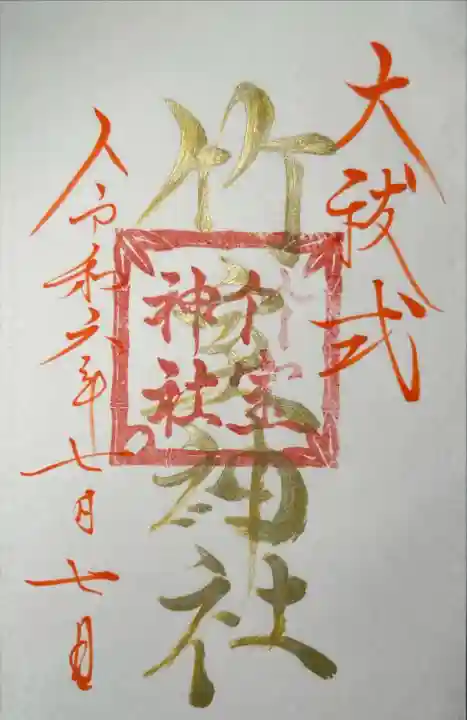 大祓式
竹
神社
神社
令和六年七月七日